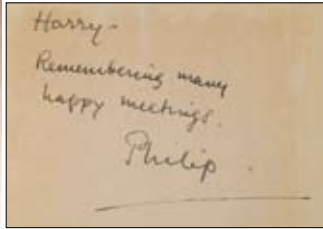 Harry –
Remembering many
happy meetings.
Philip.